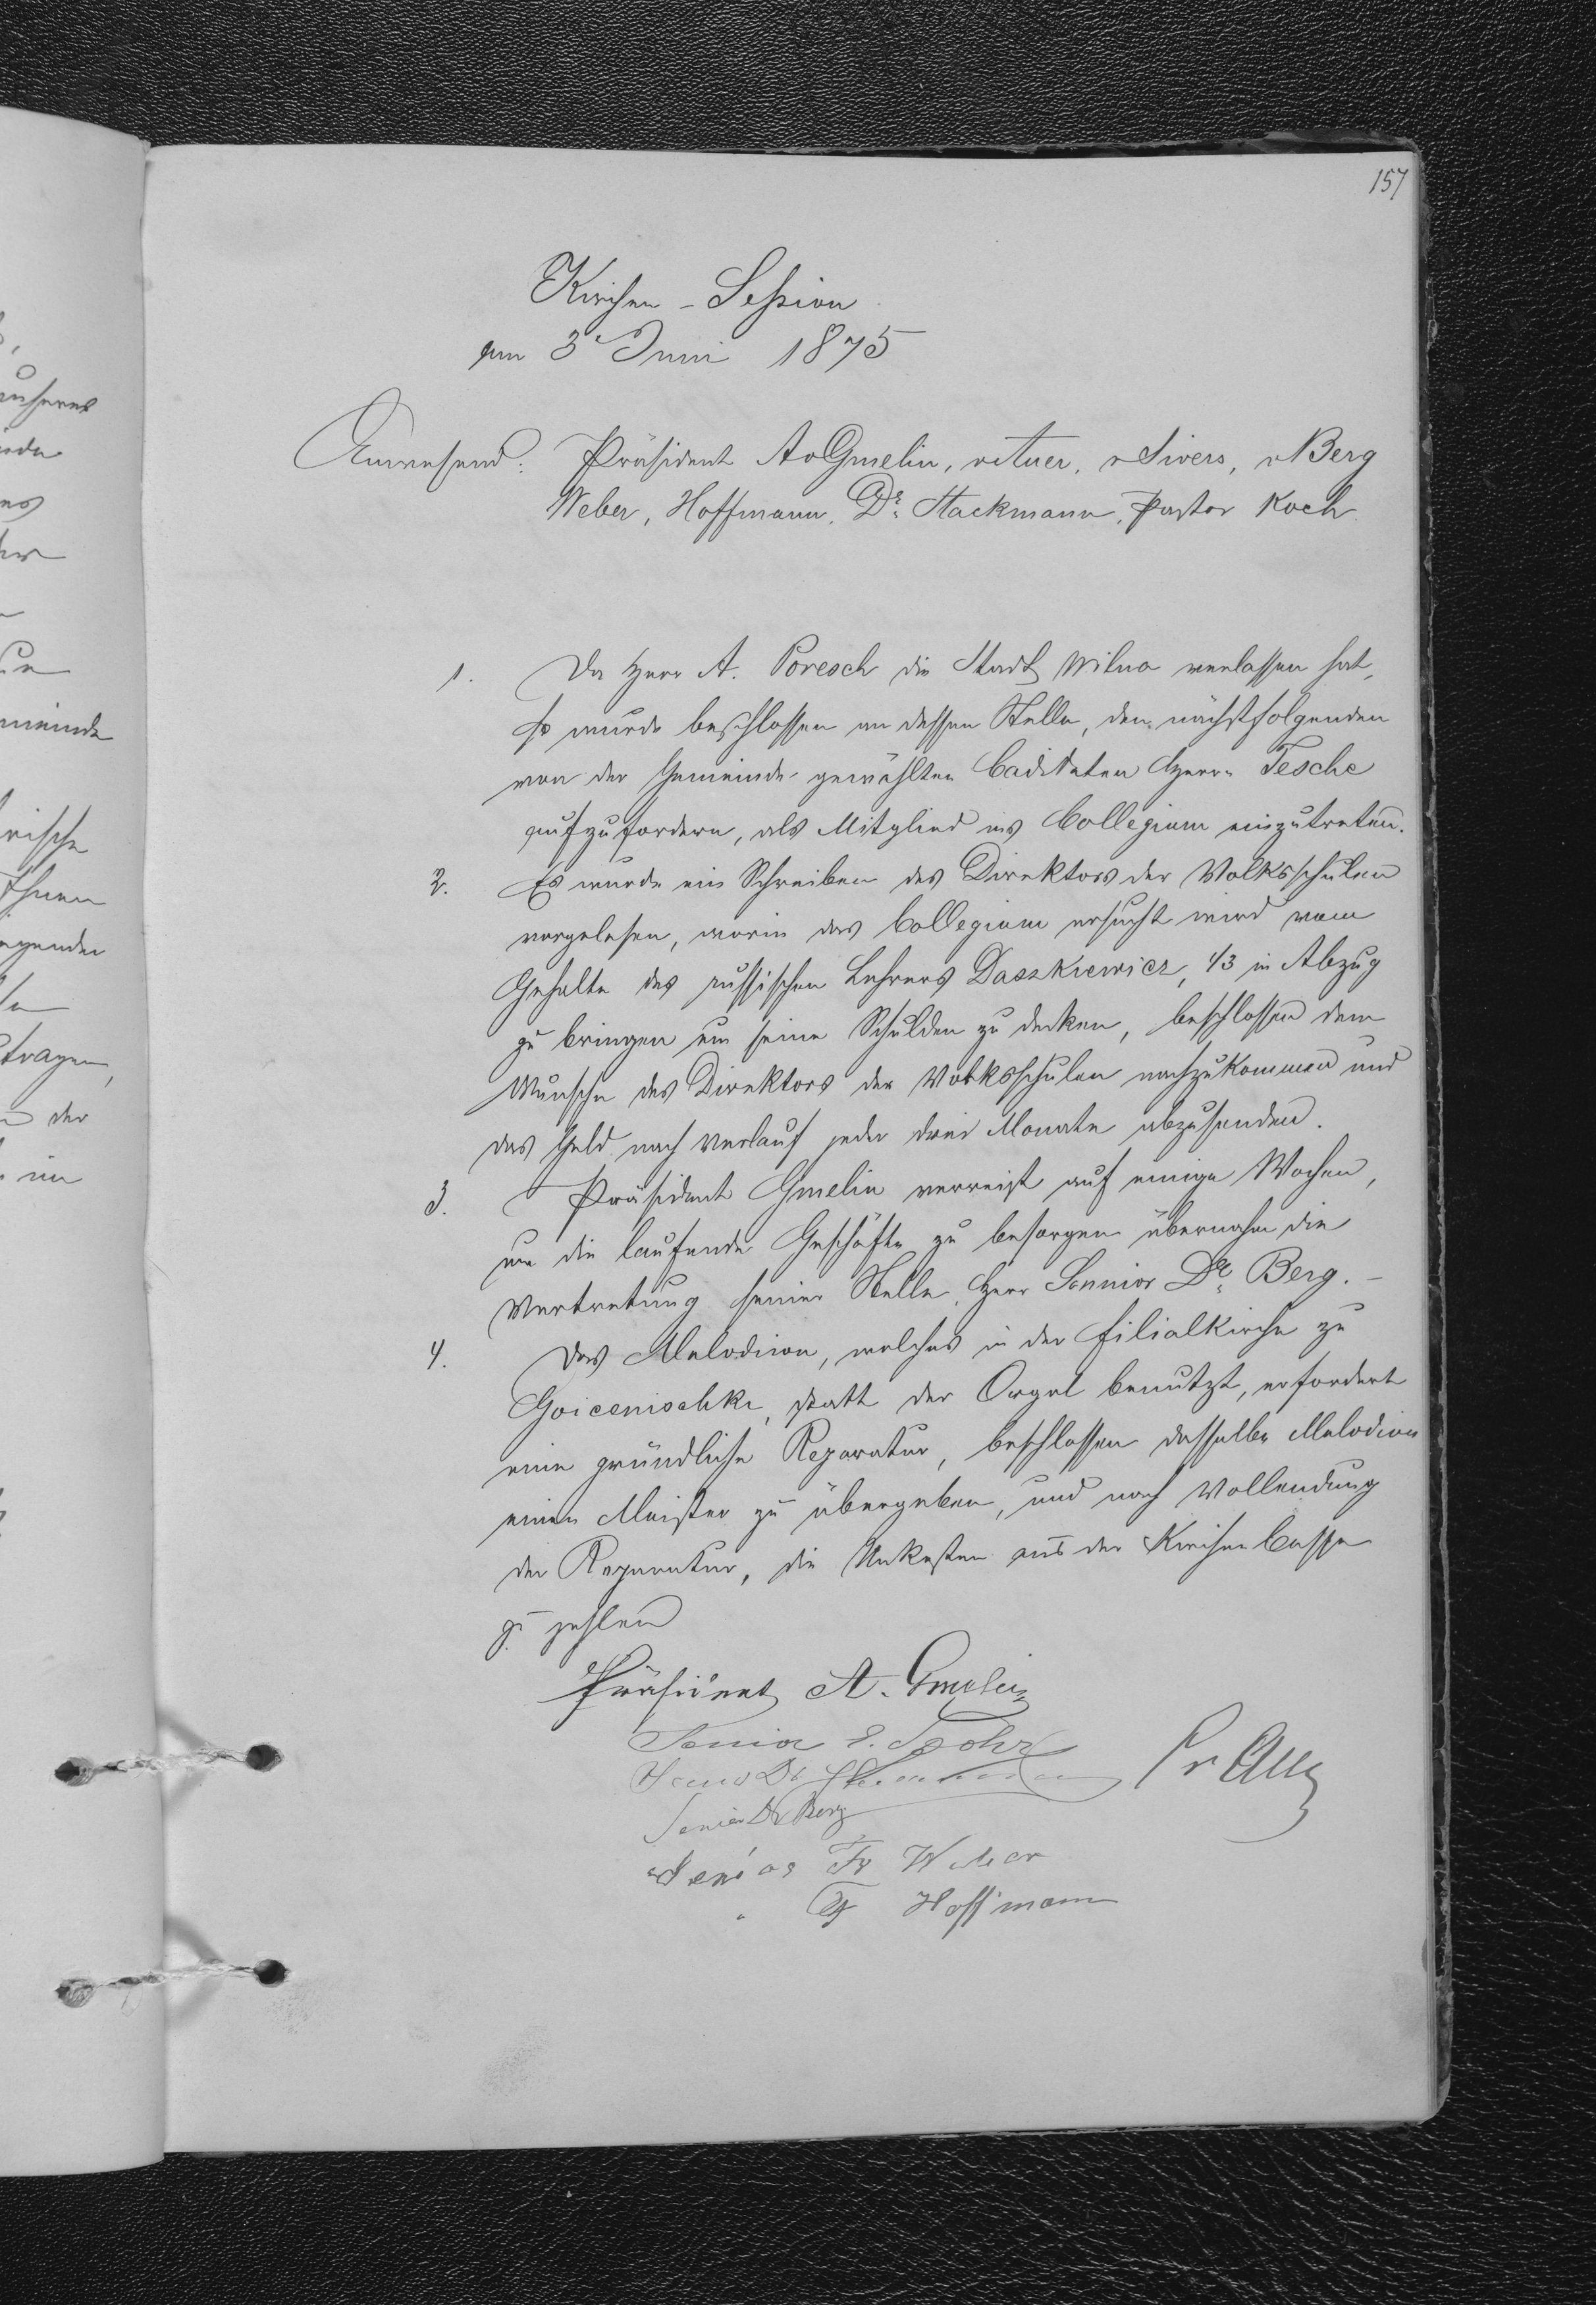 157
Kirchen-Session
am 3. Juni 1875
Anwesend: Präsident AvGmelin, v Auer, v Sivers, v Berg
Weber, Hoffmann, Dr. Stackmann, Pastor Koch
1. Da Herr A. Poresch die Stadt Wilna verlassen hat,
so wurde beschlossen an dessen Stelle, den nächstfolgenden
von der Gemeinde gewählten Cadidaten Herrn Tesche
aufzufordern, als Mitglied ins Collegium einzutreten.
2. Es wurde ein Schreiben des Direktors der Volksschulen
vorgelesen, worin das Collegium ersucht wird vom
Gehalte des russischen Lehrers Daszkiewicz, 1/3 in Abzug
zu bringen um seine Schulden zu decken, beschlossen dem
Wunsche des Direktors der Volksschulen nachzukommen und
das Geld nach Verlauf jeder drei Monate abzusenden.
3. Präsident Gmelin verreist auf einige Wochen,
um die laufende Geschäfte zu besorgen übernahm die
Vertretung seiner Stelle, Herr Sennior Dr. Berg. –
4. Das Melodion, welches in der Filialkirche zu
Goicenischki, statt der Orgel benutzt, erfordert
eine gründliche Reparatur, beschlossen dasselbe Melodion
einen Meister zu übergeben, und nach Vollendung
der Reparatur, die Unkosten aus der Kirchen Casse
zu zahlen
Präsident A. Gmelin
Senior
Senior Dr Berg
Senior Fr Weber
" Hoffmann
unseres
meinde
rische
Ihnen
tragen,
der
im